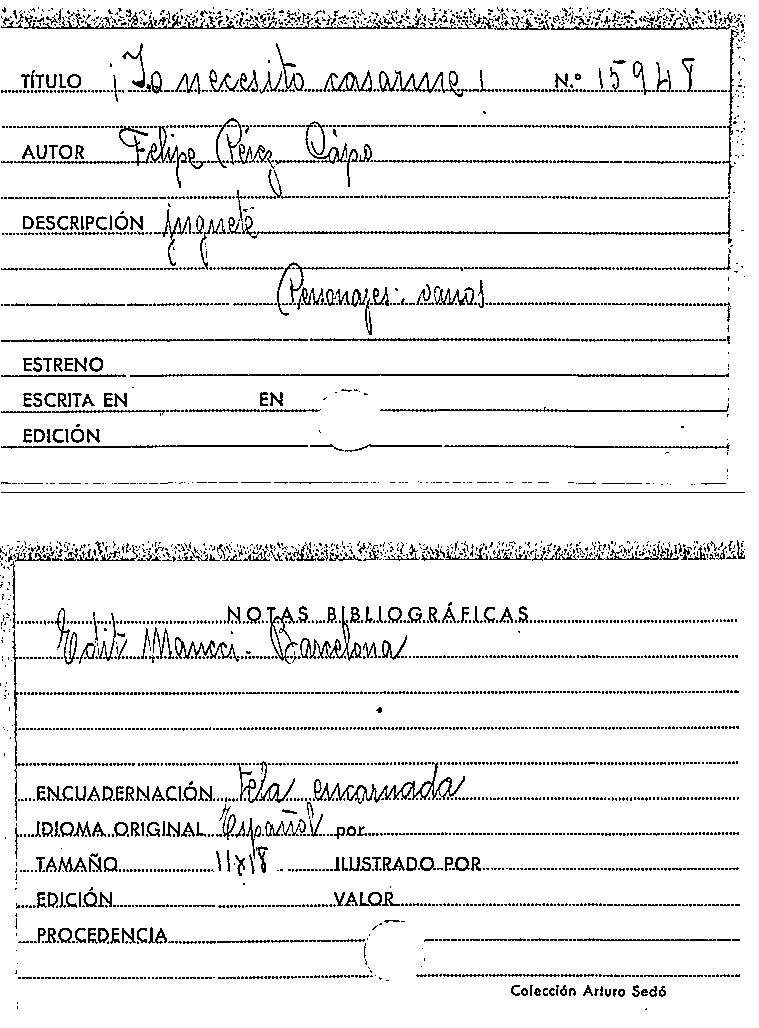 TÍTULO ¡Yo necesito casarme! N.º 15948
AUTOR Felipe Pérez Capo
DESCRIPCIÓN juguete
Personajes: varios
ESTRENO
ESCRITA EN EN
EDICIÓN
NOTAS BIBLIOGRÁFICAS
Edit Maucci. Barcelona
ENCUADERNACIÓN Tela encarnada
IDIOMA ORIGINAL Español por
TAMAÑO 11x18 ILUSTRADO POR
EDICIÓN VALOR
PROCEDENCIA
Colección Arturo Sedó